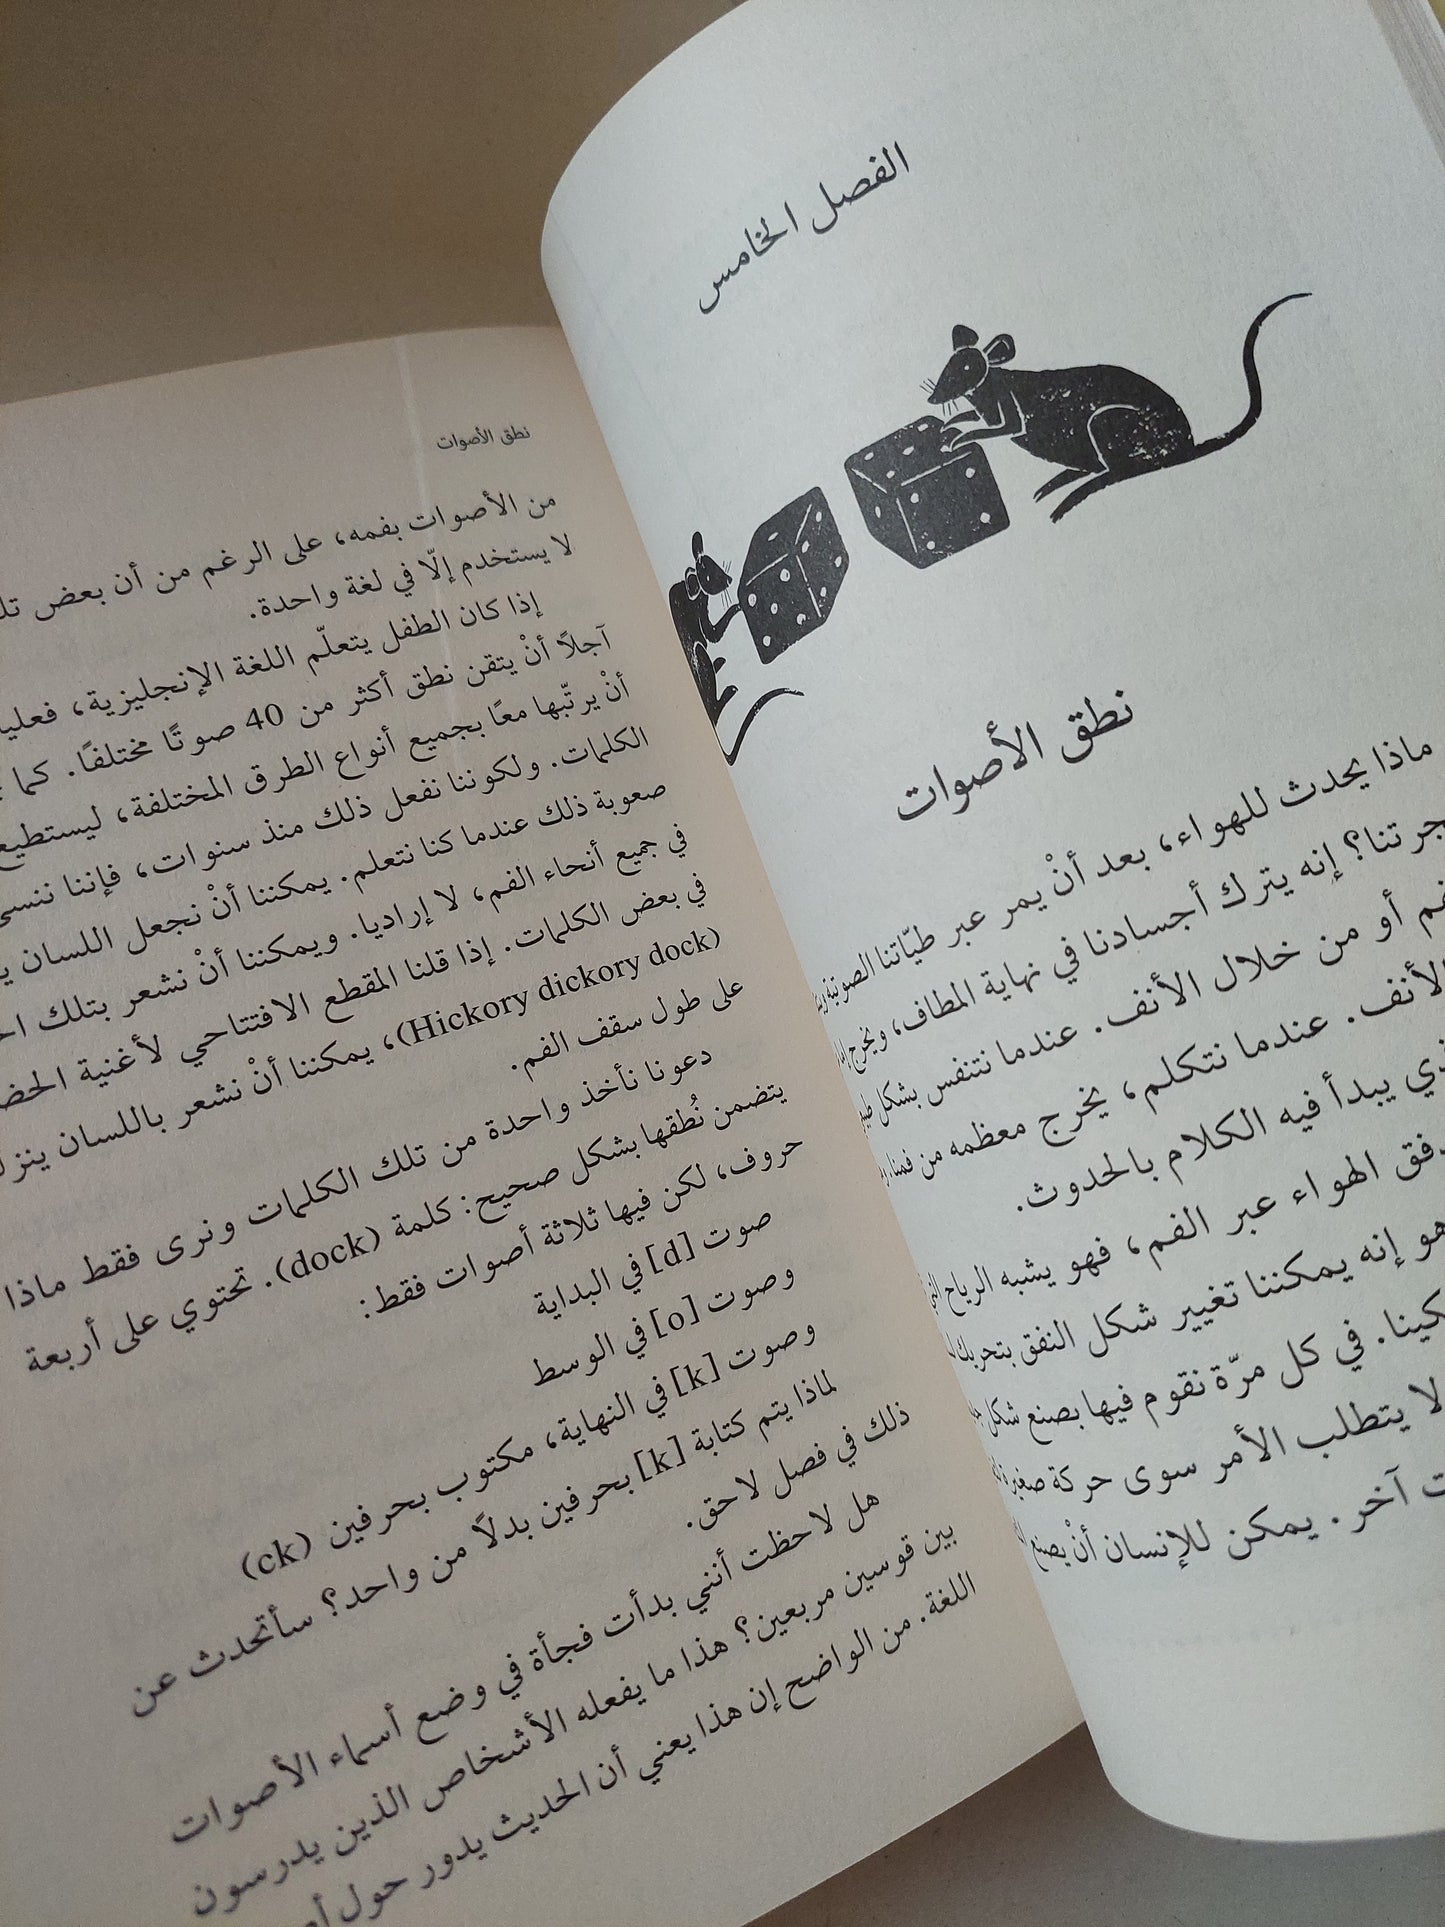 الفصل الخامس
نطق الأصوات
ماذا يحدث للهواء، بعد أنْ يمر عبر طيّاتنا الصوتية
إنه يترك أجسادنا في نهاية المطاف، ويخرج
أو من خلال الأنف. عندما نتنفس بشكل
الأنف. عندما نتكلم، يخرج معظمه من فمنا.
يبدأ فيه الكلام بالحدوث.
الهواء عبر الفم، فهو يشبه الرياح
هو إنه يمكننا تغيير شكل النفق بتحريك
في كل مرّة نقوم فيها بصنع شكل
لا يتطلب الأمر سوى حركة صغيرة
آخر. يمكن للإنسان أنْ يصنع
نطق الأصوات
من الأصوات بفمه، على الرغم من أن بعض
لا يستخدم إلّا في لغة واحدة.
إذا كان الطفل يتعلّم اللغة الإنجليزية،
آجلًا أنْ يتقن نطق أكثر من 40 صوتًا مختلفًا. كما
أنْ يرتّبها معًا بجميع أنواع الطرق المختلفة، ليستطيع
الكلمات. ولكوننا نفعل ذلك منذ سنوات، فإننا ننسى
صعوبة ذلك عندما كنا نتعلم. يمكننا أنْ نجعل اللسان
في جميع أنحاء الفم، لا إراديا. ويمكننا أنْ نشعر بتلك
في بعض الكلمات. إذا قلنا المقطع الافتتاحي لأغنية
(Hickory dickory dock)، يمكننا أنْ نشعر باللسان
على طول سقف الفم.
دعونا نأخذ واحدة من تلك الكلمات ونرى فقط ماذا
يتضمن نُطقها بشكل صحيح: كلمة (dock). تحتوي على أربعة
حروف، لكن فيها ثلاثة أصوات فقط:
صوت [d] في البداية
وصوت [o] في الوسط
وصوت [k] في النهاية، مكتوب بحرفين (ck)
لماذا يتم كتابة [k] بحرفين بدلًا من واحد؟ سأتحدث عن
ذلك في فصل لاحق.
هل لاحظت أنني بدأت فجأة في وضع أسماء الأصوات
بين قوسين مربعين؟ هذا ما يفعله الأشخاص الذين يدرسون
اللغة. من الواضح إن هذا يعني أن الحديث يدور حول